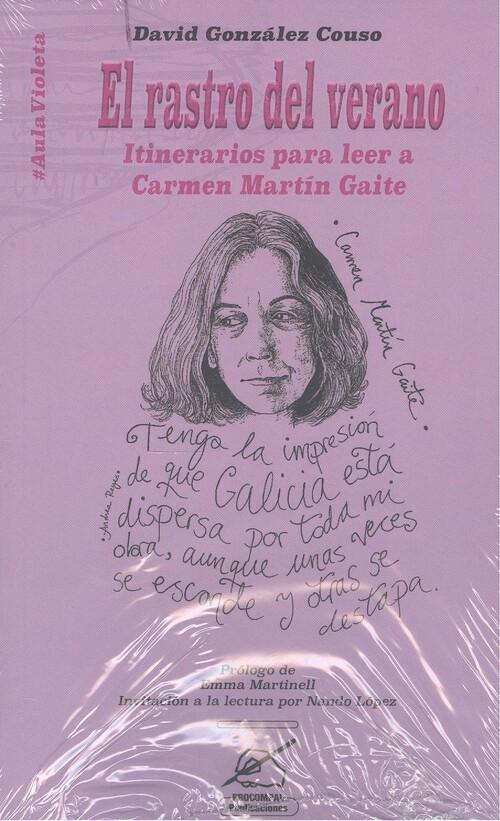 David González Couso
#AulaVioleta
El rastro del verano
Itinerarios para leer a
Carmen Martín Gaite
• Carmen Martín Gaite •
Tengo la impresión
de que Galicia está
dispersa por toda mi
obra, aunque unas veces
se esconde y otras se
destapa.
• Andrea Reyes •
Prólogo de
Emma Martinell
Invitación a la lectura por Nando López
PROCOMPAL
Publicaciones